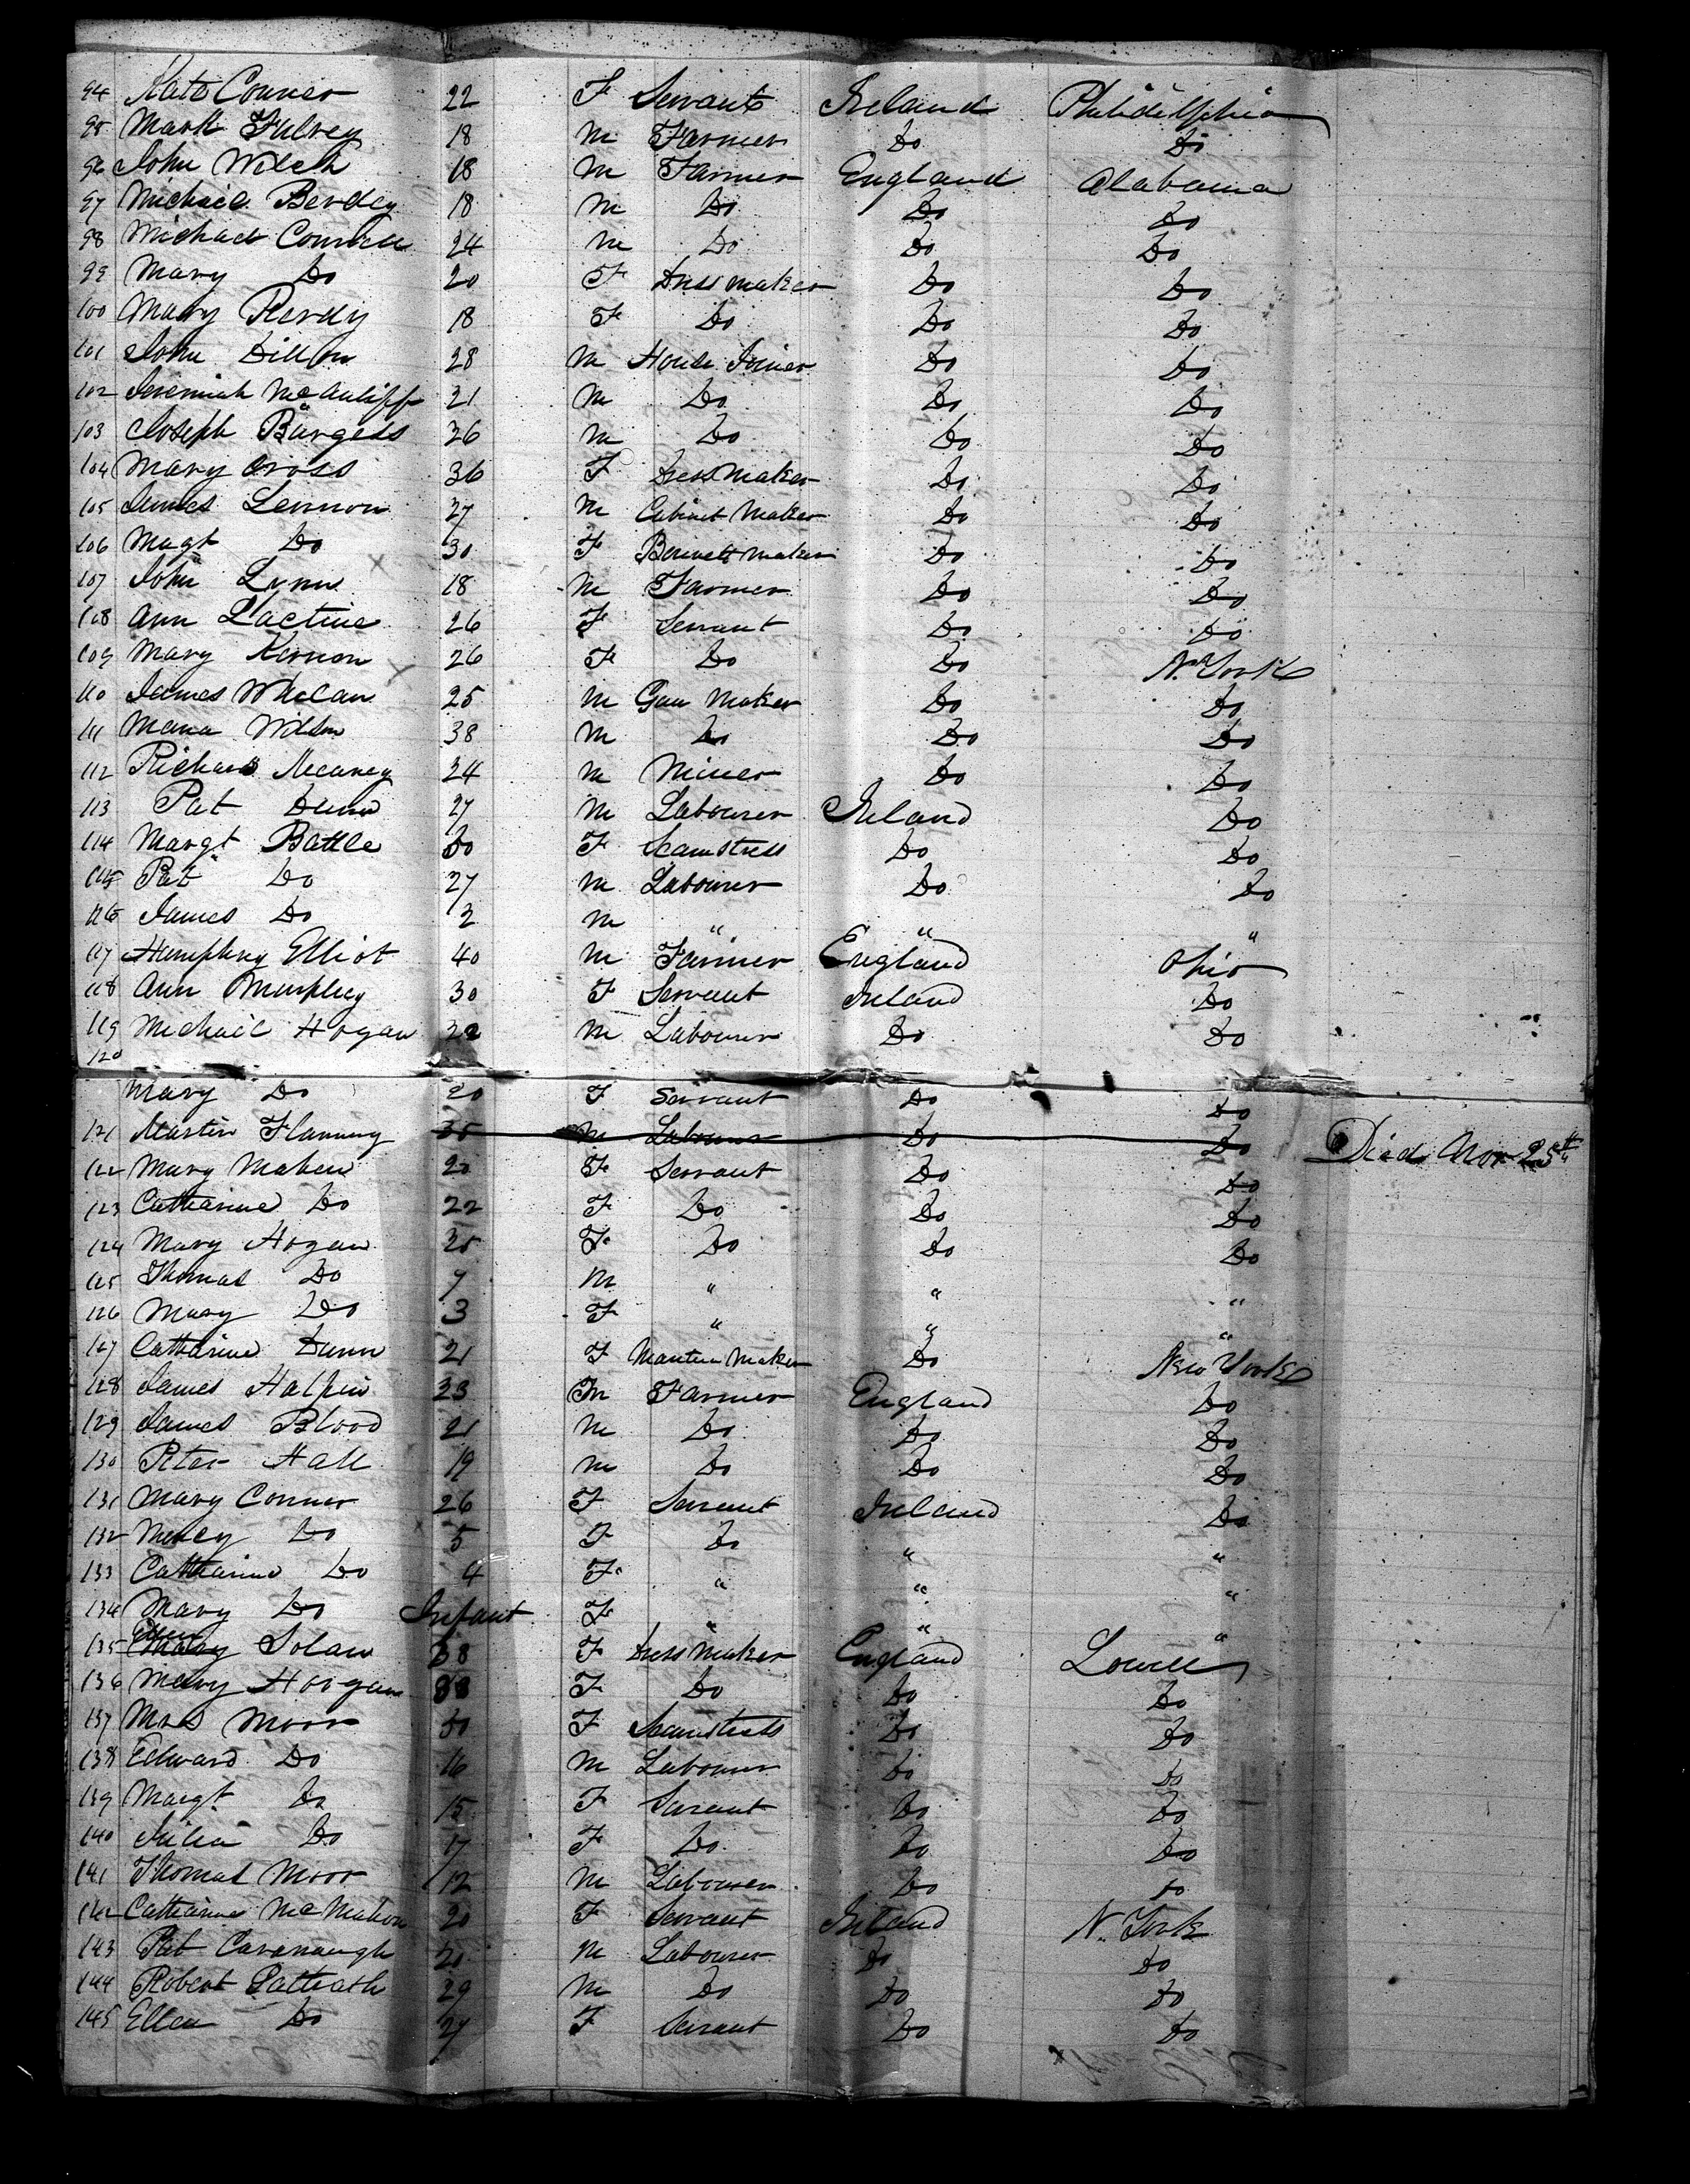 94 Kate Conner 22 F Servant Ireland Philidelphia
95 Mark Fulvey 18 M Farmer Do Do
96 John Welch 18 M Farmer England Alabama
97 Michael 18 M Do Do Do
98 Michael 24 M Do Do Do
99 Mary Do 20 F Dressmaker Do Do
100 Mary 18 F Do Do Do
101 John Dillon 28 M House Joiner Do Do
102 Jeremiah McAuliff 21 M Do Do Do
103 Joseph Burgess 26 M Do Do Do
104 Mary Cross 36 F Dress Maker Do Do
105 James Lennon 27 M Cabinet Maker Do Do
106 Magt Do 30 F Bonnett maker Do Do
107 John Lynn 18 M Farmer Do Do
108 Ann 26 F Servant Do Do
109 Mary Kernon 26 F Do Do N. York
110 James Whelan 25 M Gun Maker Do Do
111 Wilson 38 M Do Do Do
112 Richard 24 M Miner Do Do
113 Pat Dunn 27 M Labourer Ireland Do
114 Margt Battle 30 F Seamstress Do Do
115 Pat Do 27 M Labourer Do Do
116 James Do 2 M " " "
117 Humphrey Elliot 40 M Farmer England Ohio
118 Ann Murphey 30 F Servant Ireland Do
119 Michael Hogan 22 M Labourer Do Do
120
Mary Do 20 F Servant Do Do
121 Martin Flannery 35 M Labourer Do Do Died Nov 25th
122 Mary Maben 20 F Servant Do Do
123 Catharine Do 22 F Do Do Do
124 Mary Hogan 35 F Do Do Do
125 Thomas Do 7 M " " "
126 Mary Do 3 F " " "
127 Catharine Dunn 21 F Mantua Maker Do New York
128 James Halpin 23 M Farmer England Do
129 James Blood 21 M Do Do Do
130 Peter Hall 19 M Do Do Do
131 Mary Conner 26 F Servant Ireland Do
132 Do 5 F Do " "
133 Catharine Do 4 F " " "
134 Mary Do Infant F " " "
135 Ellen Solan 38 F Dress Maker England Lowell
136 Mary Horgan 33 F Do Do Do
137 Mrs Moor 50 F Seamstress Do Do
138 Edward Do 16 M Labourer Do Do
139 Margt Do 15 F Servant Do Do
140 Julia Do 17 F Do Do Do
141 Thomas Moor 12 M Labourer Do Do
142 Catharine McMahon 20 F Servant Ireland N. York
143 Pat Cavanaugh 20 M Labourer Do Do
144 Robert 29 M Do Do Do
145 Ellen Do 27 F Servant Do Do